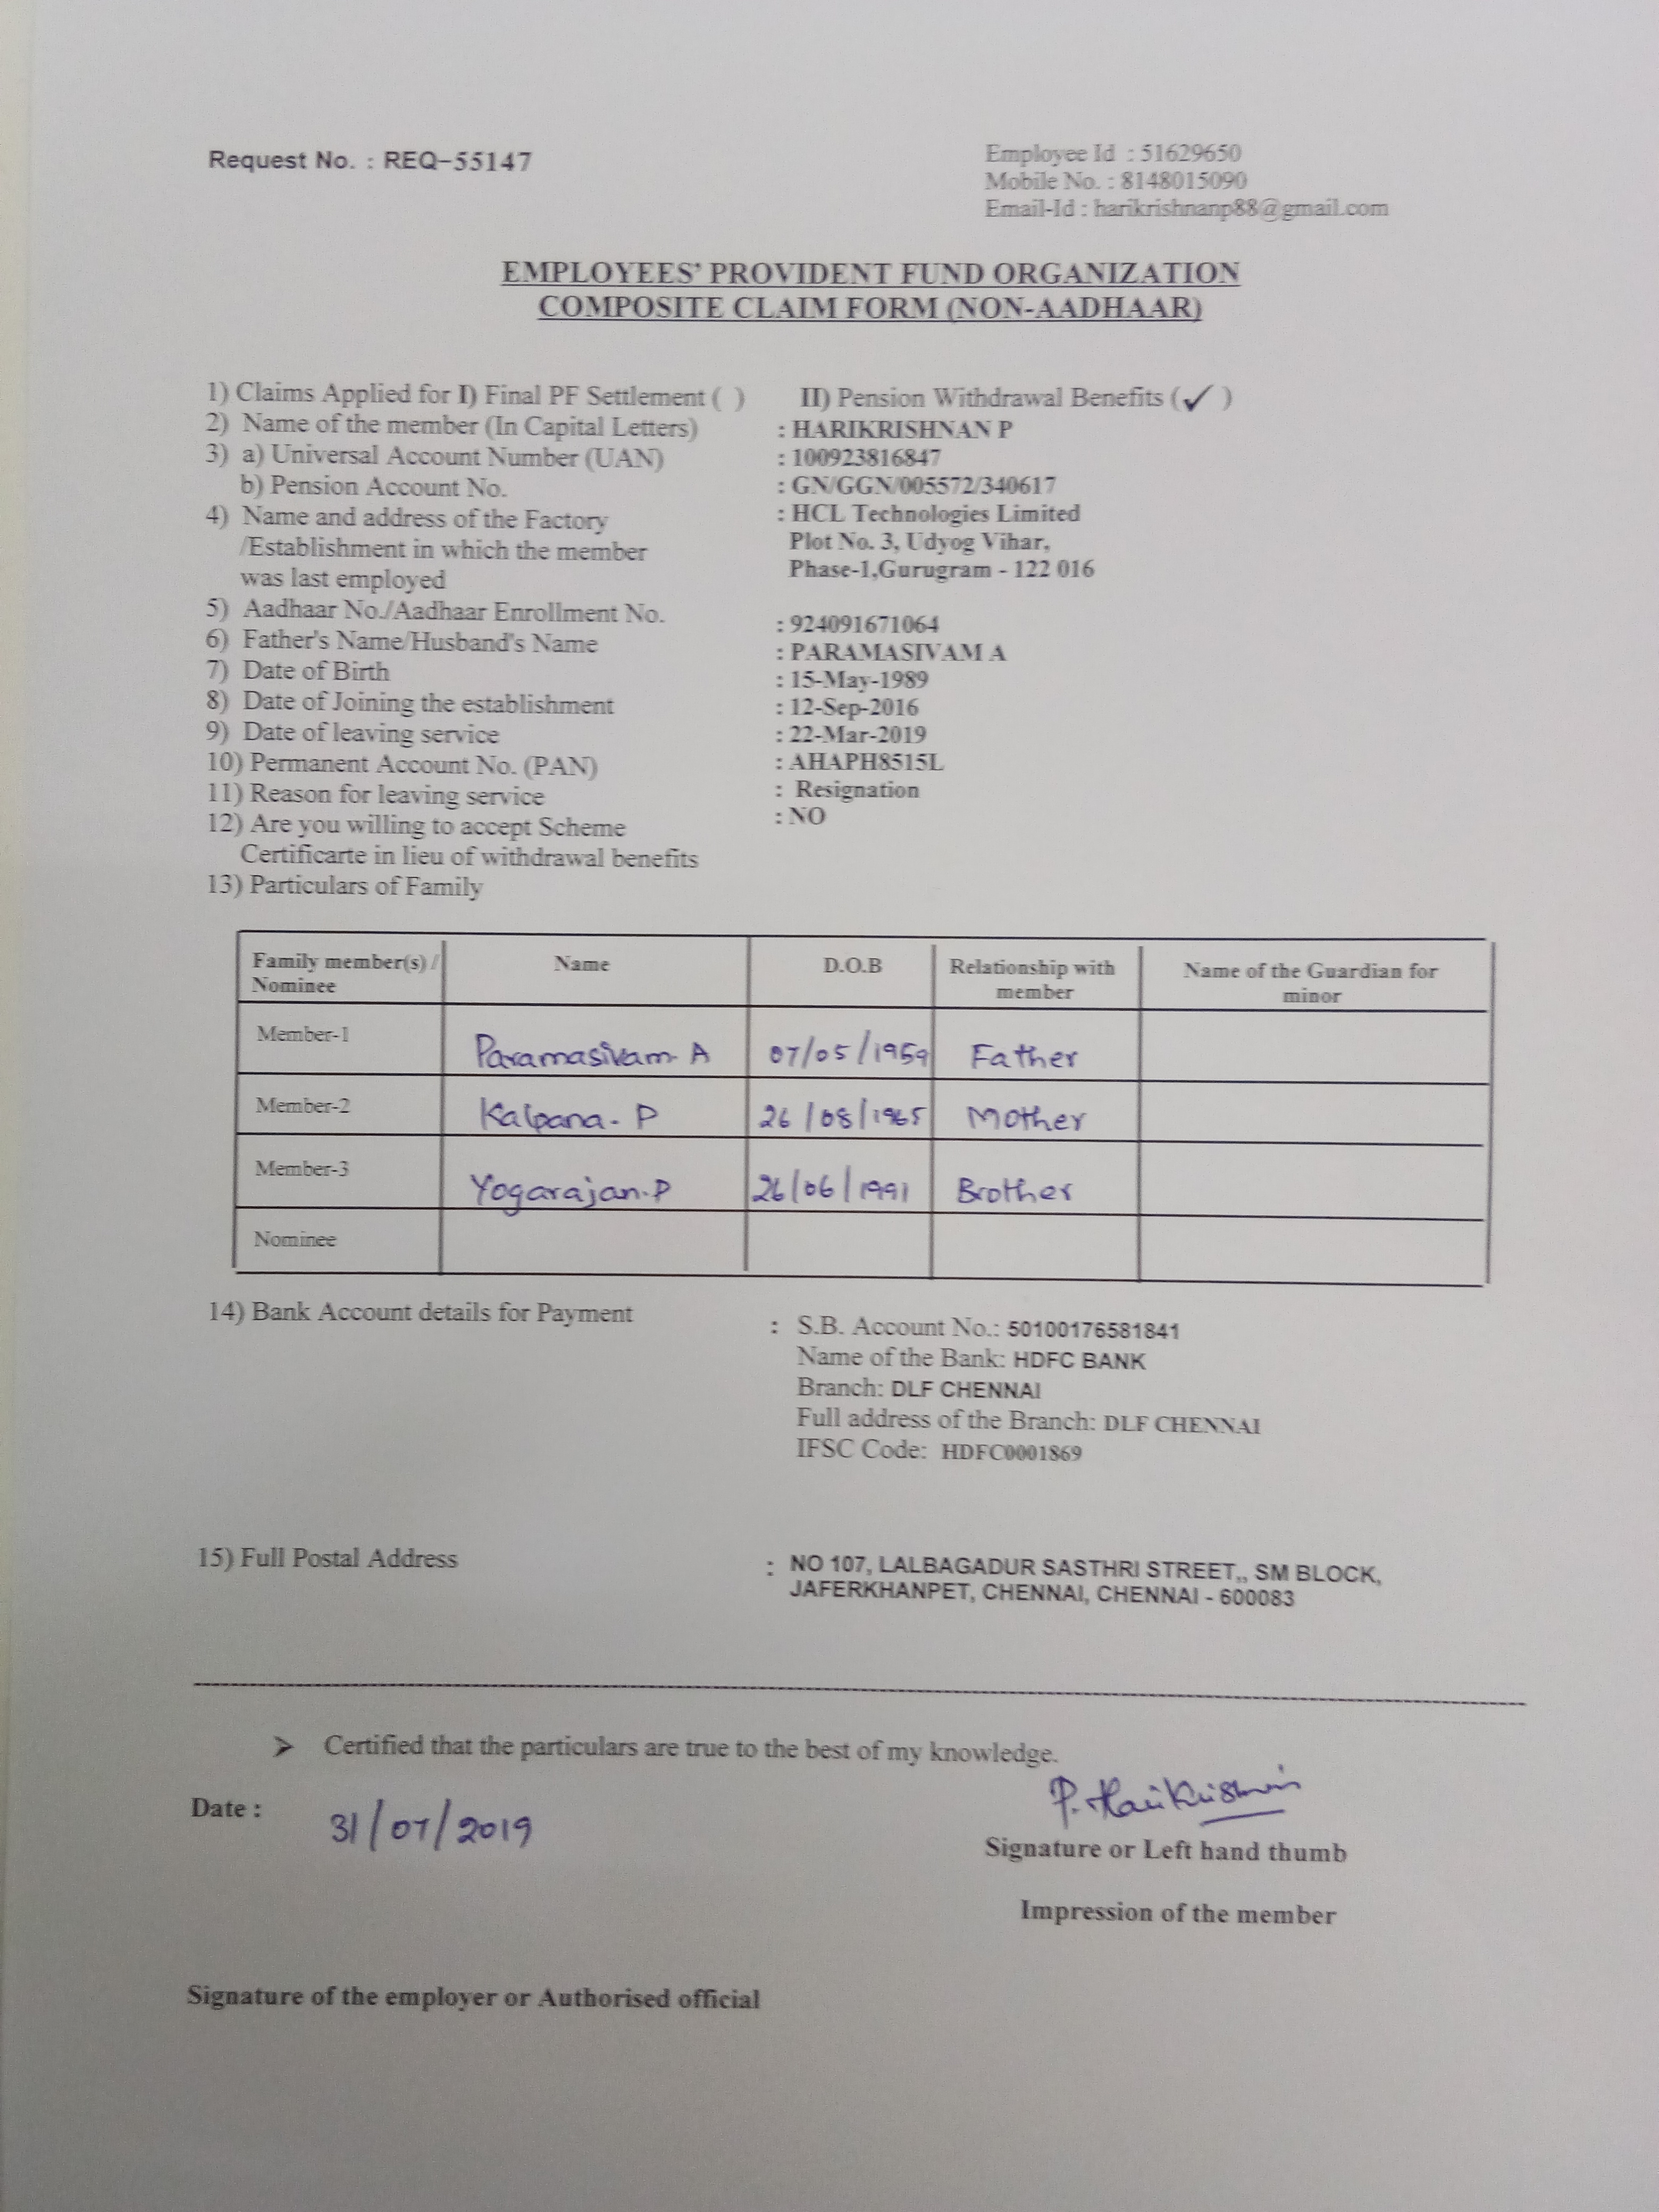 Request No. : REQ-55147
Employee Id : 51629650
Mobile No. : 8148015090
Email-Id : harikrishnanp88@gmail.com
EMPLOYEES' PROVIDENT FUND ORGANIZATION
COMPOSITE CLAIM FORM (NON-AADHAAR)
1) Claims Applied for I) Final PF Settlement ( ) II) Pension Withdrawal Benefits (✓ )
2) Name of the member (In Capital Letters) : HARIKRISHNAN P
3) a) Universal Account Number (UAN) : 100923816847
b) Pension Account No. : GN/GGN/005572/340617
4) Name and address of the Factory : HCL Technologies Limited
/Establishment in which the member Plot No. 3, Udyog Vihar,
was last employed Phase-1,Gurugram - 122 016
5) Aadhaar No./Aadhaar Enrollment No. : 924091671064
6) Father's Name/Husband's Name : PARAMASIVAM A
7) Date of Birth : 15-May-1989
8) Date of Joining the establishment : 12-Sep-2016
9) Date of leaving service : 22-Mar-2019
10) Permanent Account No. (PAN) : AHAPH8515L
11) Reason for leaving service : Resignation
12) Are you willing to accept Scheme : NO
Certificarte in lieu of withdrawal benefits
13) Particulars of Family
Family member(s) / Nominee Name D.O.B Relationship with member Name of the Guardian for minor
Member-1 Paramasivam A 07/05/1959 Father
Member-2 Kalpana. P 26/08/1965 Mother
Member-3 Yogarajan.P 26/06/1991 Brother
Nominee
14) Bank Account details for Payment : S.B. Account No.: 50100176581841
Name of the Bank: HDFC BANK
Branch: DLF CHENNAI
Full address of the Branch: DLF CHENNAI
IFSC Code: HDFC0001869
15) Full Postal Address : NO 107, LALBAGADUR SASTHRI STREET,, SM BLOCK,
JAFERKHANPET, CHENNAI, CHENNAI - 600083
➢ Certified that the particulars are true to the best of my knowledge.
P. Harikrishnan
Date : 31/07/2019
Signature or Left hand thumb
Impression of the member
Signature of the employer or Authorised official